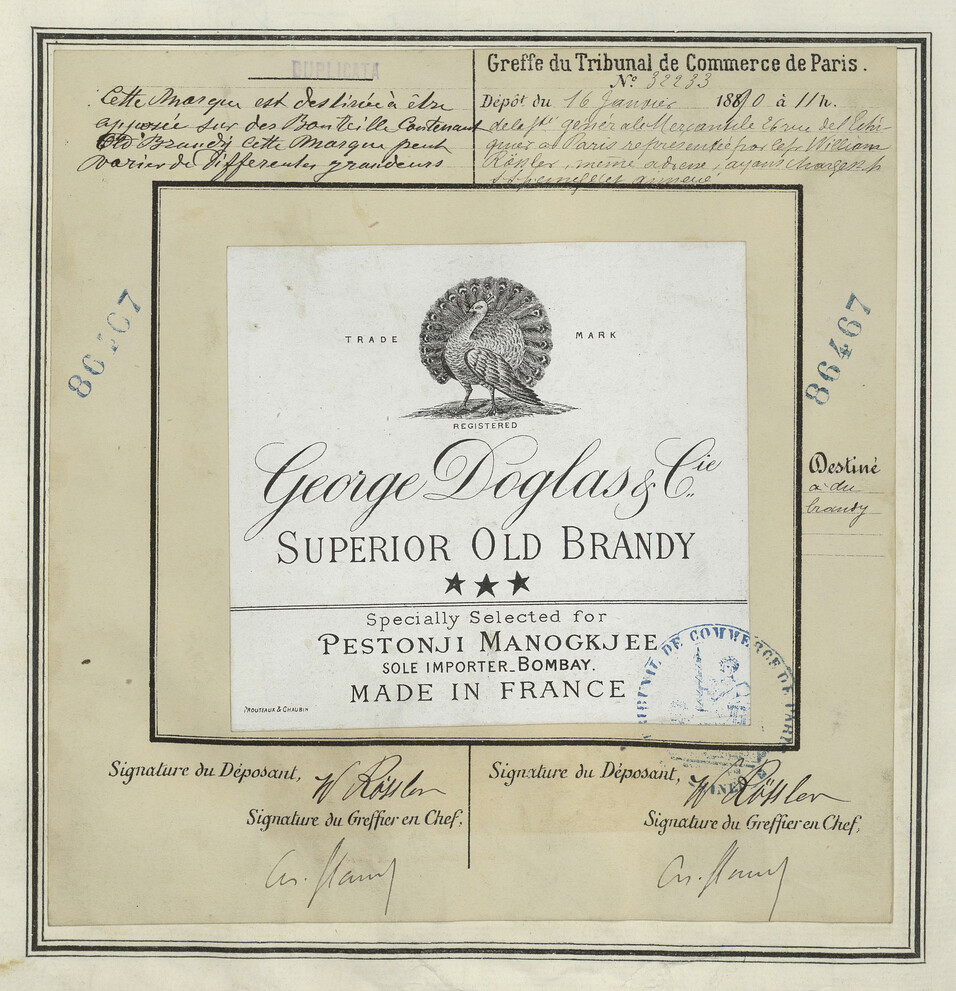 DUPLICATA
Cette Marque est destinée à être
apposée sur des Bouteille Contenant
Old Brandy Cette Marque peut
varier de differentes grandeurs
Greffe du Tribunal de Commerce de Paris.
N° 32233
Dépôt du 16 Janvier 1890 à 11 h.
de la Sté générale Mercantile 26 rue de l'Echi-
quier à Paris représentée par le sr William
Rössler, même adresse, ayant
86467
86467
TRADE MARK
REGISTERED
George Doglas & Cie
SUPERIOR OLD BRANDY
★★★
Specially Selected for
PESTONJI MANOGKJEE
SOLE IMPORTER_BOMBAY.
MADE IN FRANCE
PROUTEAUX & CHAUBIN
Destiné
à du
brandy
TRIBUNAL DE COMMERCE DE PARIS
Signature du Déposant,
W Rössler
Signature du Greffier en Chef,
Signature du Déposant,
W Rössler
Signature du Greffier en Chef,